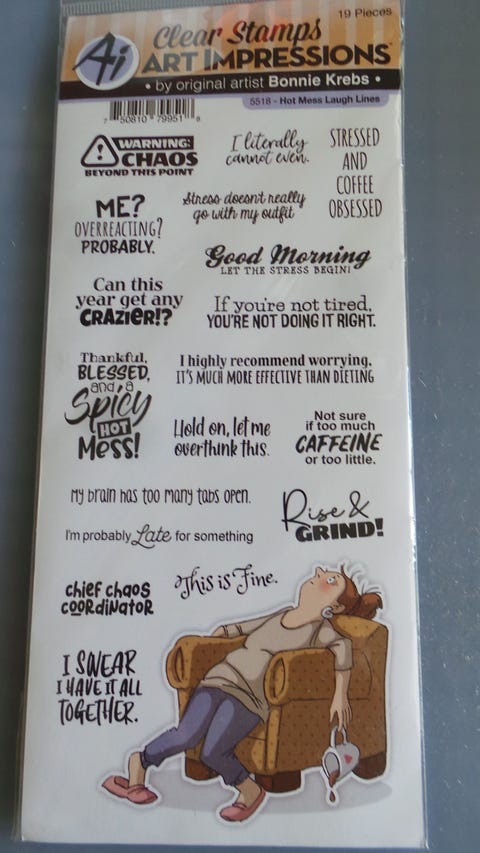 19 Pieces
Ai
Clear Stamps
ART IMPRESSIONS
• by original artist Bonnie Krebs •
5518 - Hot Mess Laugh Lines
7 50810 79951 8
WARNING:
CHAOS
BEYOND THIS POINT
I literally
cannot even.
STRESSED
AND
COFFEE
OBSESSED
ME?
OVERREACTING?
PROBABLY.
Stress doesn't really
go with my outfit
Good Morning
LET THE STRESS BEGIN!
Can this
year get any
CRAZIER!?
If you're not tired,
YOU'RE NOT DOING IT RIGHT.
Thankful,
BLESSED,
and a
Spicy
HOT
Mess!
I highly recommend worrying.
IT'S MUCH MORE EFFECTIVE THAN DIETING
Hold on, let me
overthink this.
Not sure
if too much
CAFFEINE
or too little.
My brain has too many tabs open.
Rise &
GRIND!
I'm probably Late for something
chief chaos
coordinator
This is Fine.
I SWEAR
I HAVE IT ALL
TOGETHER.